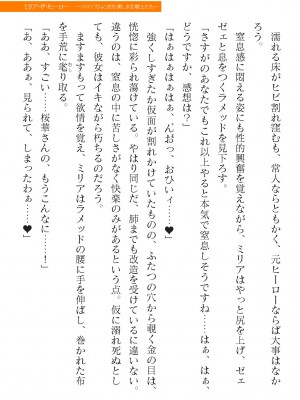 濡れる床がヒビ割れ窪むも、常人ならともかく、元ヒーローならば大事はなか
ろう。
窒息感に悶える姿にも性的興奮を覚えながら、ミリアはやっと尻を上げ、ゼェ
ゼェと息をつくラメッドを見下ろす。
「さすがのあなたでもこれ以上やると本気で窒息しそうですね……はぁ、はぁ、
どうですか、感想は?」
「はぁはぁはぁはぁ、んおっ、おひぃィ……♥」
強くしすぎたか仮面が割れかけていたものの、ふたつの穴から覗く金の目は、
恍惚に彩られ蕩けている。やはり同じだ、肺までも改造を受けているに違いない。
違うのは、窒息の中に苦しさがなく快楽のみがあるという点。仮に溺れ死ぬとし
ても、彼女はイキながら朽ちるのだろう。
ますますもって欲情を覚え、ミリアはラメッドの腰に手を伸ばし、巻かれた布
を手荒に毟り取る。
「ああ、すごい……桜華さんの、もうこんなに……!」
「あ、あああ、見られて、しまったわぁ……♥」